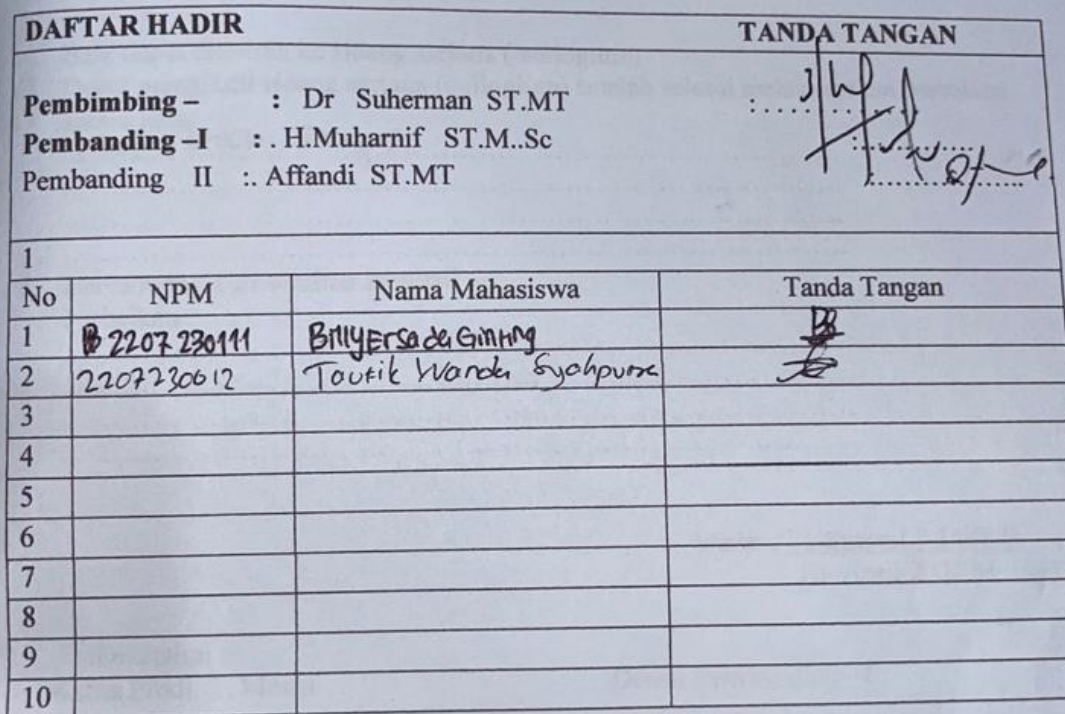 DAFTAR HADIR TANDA TANGAN
Pembimbing – : Dr Suherman ST.MT :
Pembanding –I : . H.Muharnif ST.M..Sc
Pembanding II :. Affandi ST.MT
1
No NPM Nama Mahasiswa Tanda Tangan
1 2207230111 Billy Ersada Ginting
2 2207230012 Taufik Wanda Syahputra
3
4
5
6
7
8
9
10